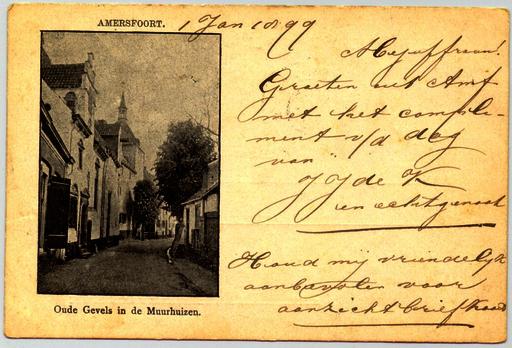 AMERSFOORT.
1 Jan 1899
Mejuffrouw!
Groeten uit Amf
met het compli-
ment v/d dag
van
J J de K
en echtgenoot
Houd mij vriendelijk
aanbevolen voor
aanzichtbriefkaart
Oude Gevels in de Muurhuizen.